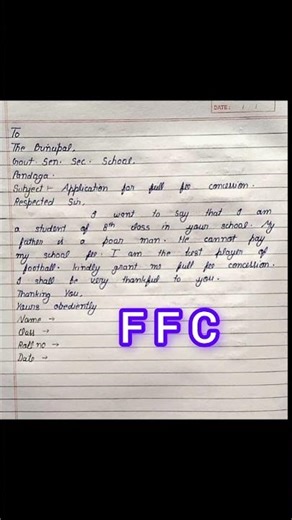 DATE: / /
To
The Principal,
Govt. Sen. Sec. School.
Pandoga.
Subject :- Application for full fee concession.
Respected Sir,
I want to say that I am
a student of 8th class in your school. My
father is a poor man. He cannot pay
my school fee. I am the best player of
football. kindly grant me full fee concession.
I shall be very thankful to you.
Thanking You,
Yours obediently
Name →
Class →
Roll no →
Date →
FFC